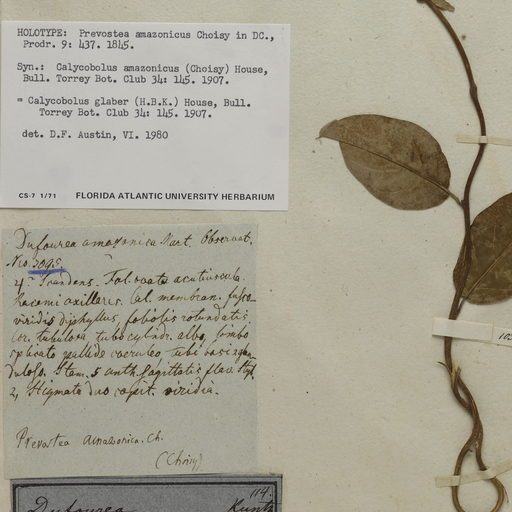 HOLOTYPE: Prevostea amazonicus Choisy in DC.,
Prodr. 9: 437. 1845.
Syn.: Calycobolus amazonicus (Choisy) House,
Bull. Torrey Bot. Club 34: 145. 1907.
= Calycobolus glaber (H.B.K.) House, Bull.
Torrey Bot. Club 34: 145. 1907.
det. D.F. Austin, VI. 1980
CS-7 1/71 FLORIDA ATLANTIC UNIVERSITY HERBARIUM
Dufourea amazonica Mart. Observat.
No. 3095
Scandens. Fol. ovata acutiuscula.
Racemi axillares. Cal. membran. fusco-
viridis diphyllus foliolis rotundatis
cor. tubulosa tubo cylindr. albo, limbo
plicato pallide caeruleo, tubi basi glan-
duloso. Stam. 5 anth. sagittatis flavis Styl.
2, Stigmata duo capit. viridia.
Prevostea amazonica. Ch.
(Choisy)
114.
Dufourea Kunth
103